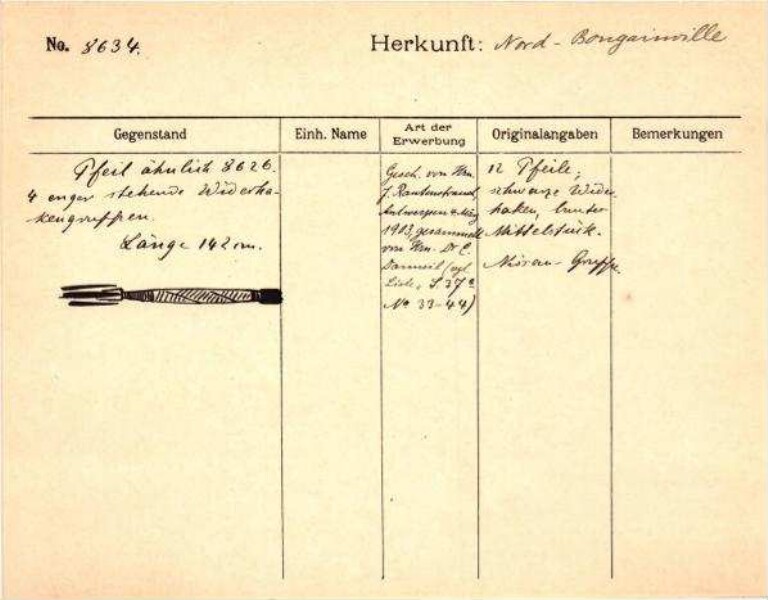 No. 8634.
Herkunft: Nord-Bougainville
Gegenstand
Einh. Name
Art der Erwerbung
Originalangaben
Bemerkungen
Pfeil ähnlich 8626.
4 enger stehende Widerha-
kengruppen.
Länge 142 cm.
Gesch. von Hrn.
J. Rautenstrauch,
Antwerpen 4. März
1903, gesammelt
von Hrn. Dr. E.
(vgl.
Liste, S. 37
No 33-44)
12 Pfeile,
schwarze Wider-
haken, bunter
Mittelstück.